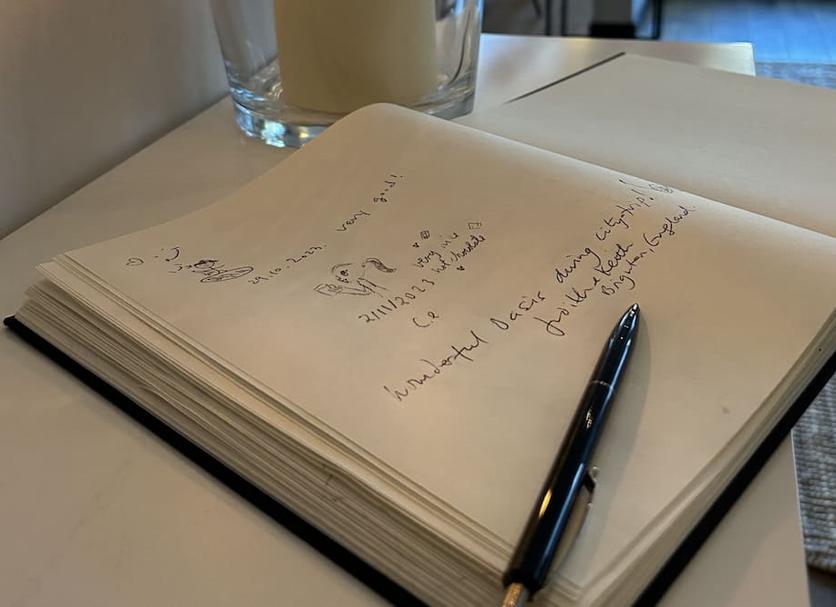 29.10.2023. very good!
very nice
hot chocolate
2/11/2023
C.R
Wonderful Oasis during citytrip!
Judith & Keith
Brighton, England.